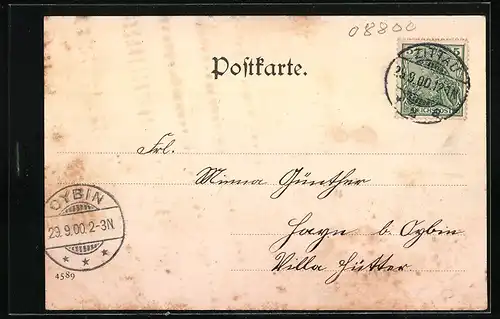 08800
5
ZITTAU
29.9.00.12-1N
Postkarte.
Frl.
Minna Günther
OYBIN
29.9.00.2-3N
Hayn b. Oybin
Villa Hütter
4589